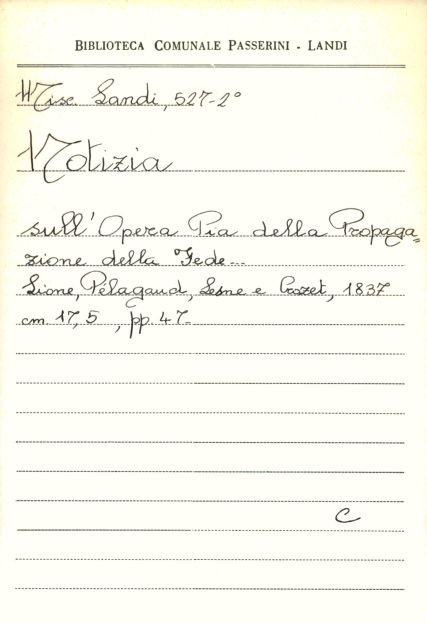 BIBLIOTECA COMUNALE PASSERINI - LANDI
Misc. Landi, 527-2°
Notizia
sull'Opera Pia della Propaga=
zione della Fede...
Lione, Pélagaud, Lesne e Crozet, 1837
cm. 17,5 , pp. 47.
C